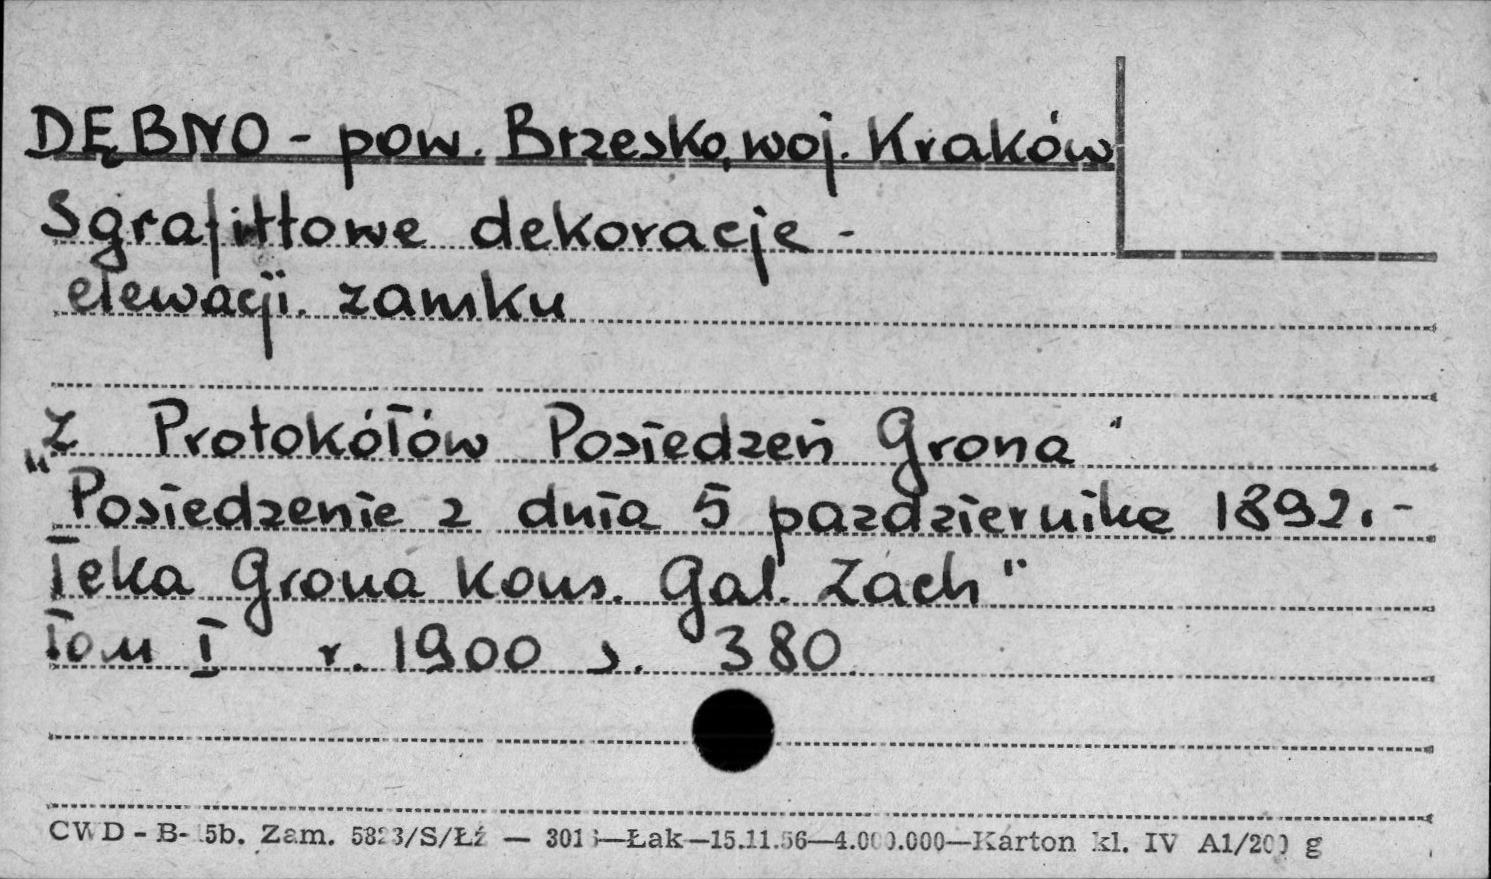 DĘBNO - pow. Brzesko, woj. Kraków
Sgrafittowe dekoracje -
elewacji. zamku
„Z Protokółów Posiedzeń Grona"
"Posiedzenie z dnia 5 pazdziernika 1892. -
Teka Grona Kons. Gal. Zach"
Tom I r. 1900 s. 380
CWD - B- 5b. Zam. 5823/S/Łź — 3013—Łak—15.11.56—4.000.000—Karton kl. IV A1/200 g